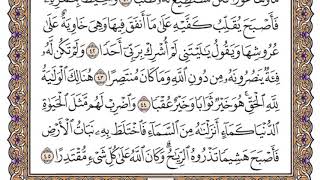 فَأَصْبَحَ يُقَلِّبُ كَفَّيْهِ عَلَىٰ مَآ أَنفَقَ فِيهَا وَهِيَ خَاوِيَةٌ عَلَىٰ
عُرُوشِهَا وَيَقُولُ يَٰلَيْتَنِي لَمْ أُشْرِكْ بِرَبِّىٓ أَحَدًا ٤٢ وَلَمْ تَكُن لَّهُۥ
فِئَةٌ يَنصُرُونَهُۥ مِن دُونِ ٱللَّهِ وَمَا كَانَ مُنتَصِرًا ٤٣ هُنَالِكَ ٱلْوَلَٰيَةُ
لِلَّهِ ٱلْحَقِّ هُوَ خَيْرٌ ثَوَابًا وَخَيْرٌ عُقْبًا ٤٤ وَٱضْرِبْ لَهُم مَّثَلَ ٱلْحَيَوٰةِ
ٱلدُّنْيَا كَمَآءٍ أَنزَلْنَٰهُ مِنَ ٱلسَّمَآءِ فَٱخْتَلَطَ بِهِۦ نَبَاتُ ٱلْأَرْضِ
فَأَصْبَحَ هَشِيمًا تَذْرُوهُ ٱلرِّيَٰحُ وَكَانَ ٱللَّهُ عَلَىٰ كُلِّ شَىْءٍ مُّقْتَدِرًا ٤٥